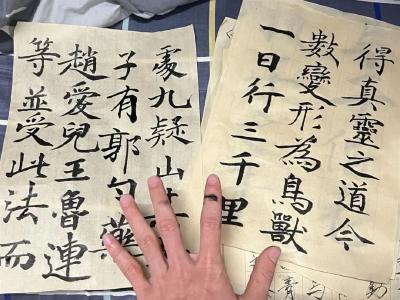 處九疑山
子有郭勺藥
趙愛兒王魯連
等並受此法而
得真靈之道今
數變形為鳥獸
一日行三千里